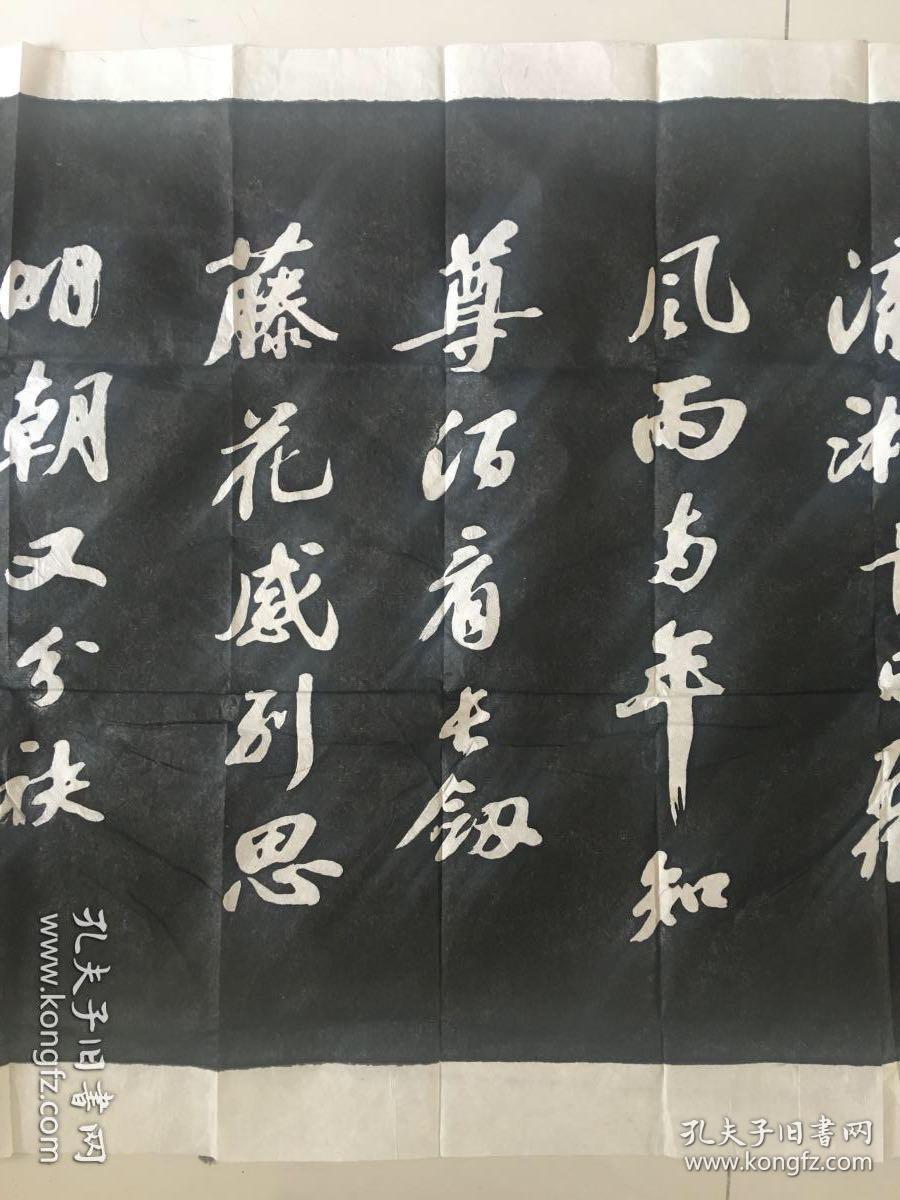 清湘昔日
风雨与年知
尊酒看长劔
藤花感别思
明朝又分袂
孔夫子旧書网
www.kongfz.com
孔夫子旧書网
www.kongfz.com